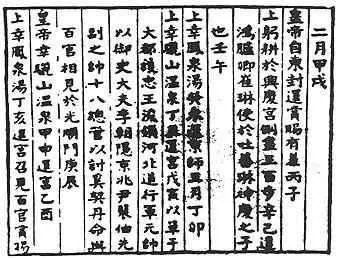 二月甲戌
皇帝自東封還賞賜有差丙子
上躬耕於興慶宮側盡三百步辛己還
鴻臚卿崔琳使於吐蕃琳神慶之子
也壬午
上幸鳳泉湯還京師丁卯
上幸驪山温泉丁還宮戊寅以單于
大都護忠王浚領河北道行軍元帥
以御史大夫李朝隱京兆尹裴伷先
副之帥十八總管以討奚契丹命與
百官相見於光順門庚辰
皇帝幸驪山温泉甲申還宮乙酉
上幸鳳泉湯丁亥還宮召見百官賞賜